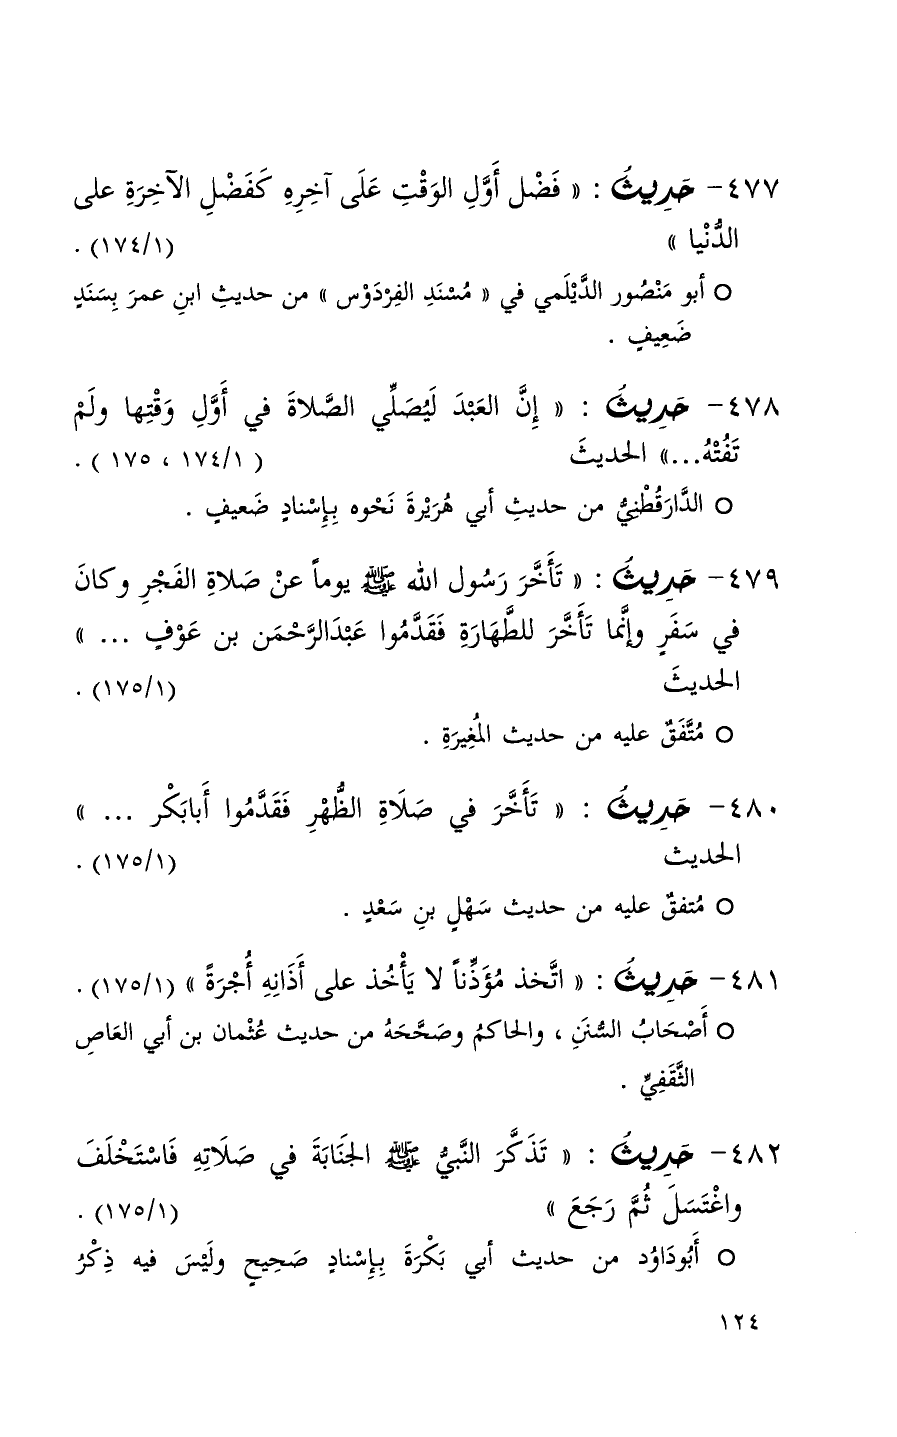 ٤٧٧- حَدِيثُ : « فَضْل أَوَّلِ الوَقْتِ عَلَى آخِرِهِ كَفَضْلِ الآخِرَةِ على
الدُّنْيا » (١٧٤/١) .
○ أبو مَنْصُور الدَّيْلَمي في « مُسْنَدِ الفِرْدَوْس » من حديثِ ابنِ عمرَ بِسَنَدٍ
ضَعِيفٍ .
٤٧٨- حَدِيثُ : « إِنَّ العَبْدَ لَيُصَلِّي الصَّلاةَ في أَوَّلِ وَقْتِها ولَمْ
تَفُتْهُ...» الحديثَ ( ١٧٤/١ ، ١٧٥ ) .
○ الدَّارَقُطْنِيُّ من حديثِ أبي هُرَيْرةَ نَحْوه بِإِسْنادٍ ضَعيفٍ .
٤٧٩- حَدِيثُ : « تَأَخَّرَ رَسُول الله ﷺ يوماً عنْ صَلاةِ الفَجْرِ وكانَ
في سَفَرٍ وإنَّما تَأَخَّرَ للطَّهَارَةِ فَقَدَّمُوا عَبْدَالرَّحْمَن بن عَوْفٍ ... »
الحديثَ (١٧٥/١) .
○ مُتَّفَقٌ عليه من حديث المُغِيرَةِ .
٤٨٠- حَدِيثُ : « تَأَخَّرَ في صَلَاةِ الظُّهْرِ فَقَدَّمُوا أَبابَكْر ... »
الحديث (١٧٥/١) .
○ مُتفقٌ عليه من حديث سَهْلِ بنِ سَعْدٍ .
٤٨١- حَدِيثُ : « اتَّخذ مُؤَذِّناً لا يَأْخُذ على أَذَانِهِ أُجْرَةً » (١٧٥/١) .
○ أَصْحَابُ السُّنَنِ ، والحاكمُ وصَحَّحَهُ من حديث عُثْمان بن أبي العَاصِ
الثَّقَفِيِّ .
٤٨٢- حَدِيثُ : « تَذَكَّرَ النَّبيُّ ﷺ الجَنَابَةَ في صَلَاتِهِ فَاسْتَخْلَفَ
واغْتَسَلَ ثُمَّ رَجَعَ » (١٧٥/١) .
○ أَبُودَاوُد من حديث أبي بَكْرَةَ بِإِسْنادٍ صَحِيحٍ ولَيْسَ فيه ذِكْرُ
١٢٤